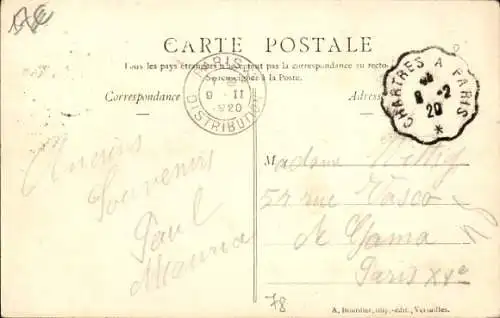 CARTE POSTALE
Tous les pays étrangers n'acceptent pas la correspondance au recto
Se renseigner à la Poste.
Correspondance
Adresse
PARIS
9 - II
1920
DISTRIBUTION
CHARTRES A PARIS
8 - 2
20
*
Anciens
Souvenirs
Paul
Madame
54 rue Vasco
de Gama
Paris XVe
78
A. Bourdier, imp.-édit., Versailles.